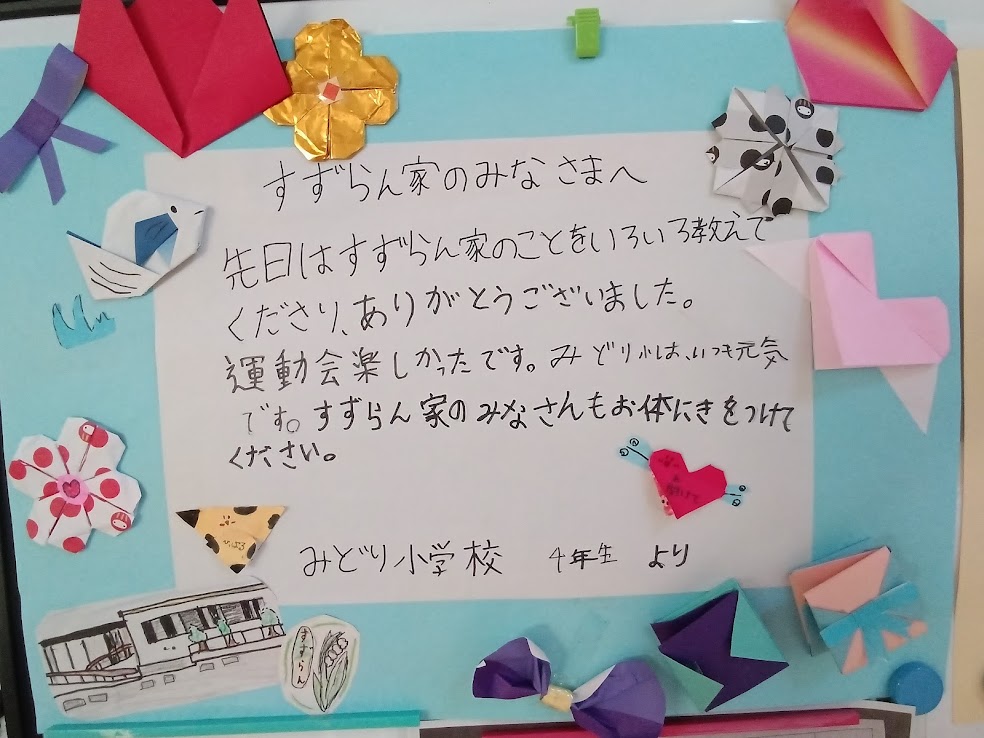 すずらん家のみなさまへ
先日はすずらん家のことをいろいろ教えて
くださり、ありがとうございました。
運動会楽しかったです。みどり小は、いつも元気
です。すずらん家のみなさんもお体にきをつけて
ください。
みどり小学校 4年生 より
すずらん